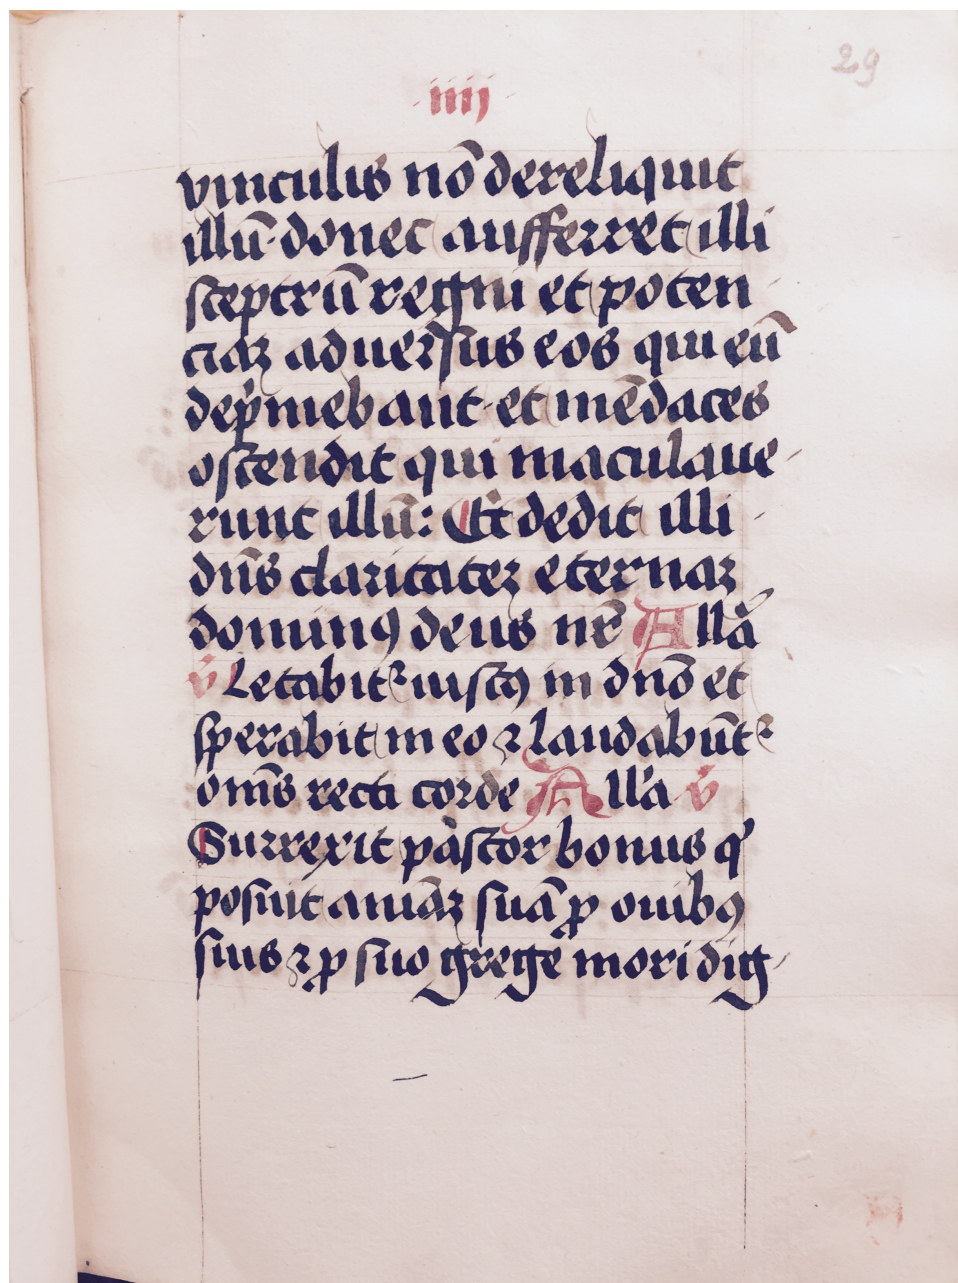 29
·iiij·
vinculis nō dereliquit
illū· donec aufferret illi
sceptrū regni et poten
ciaꝫ aduersus eos qui eū
dep̍mebant· et mēdaces
ostendit qui maculaue
runt illū: Et dedit illi
dn̄s claritateꝫ eternaꝫ
dominꝯ deus nr̄ All̄a
v̄ Letabitᷣ iustꝯ in dn̄o et
sperabit in eo ⁊ laudabūtᷣ
om̄s recti corde All'a v̄
Surrexit pastor bonus qͥ
posuit aniāꝫ suā ꝓ ouibꝯ
suis ⁊ ꝓ suo grege mori dig